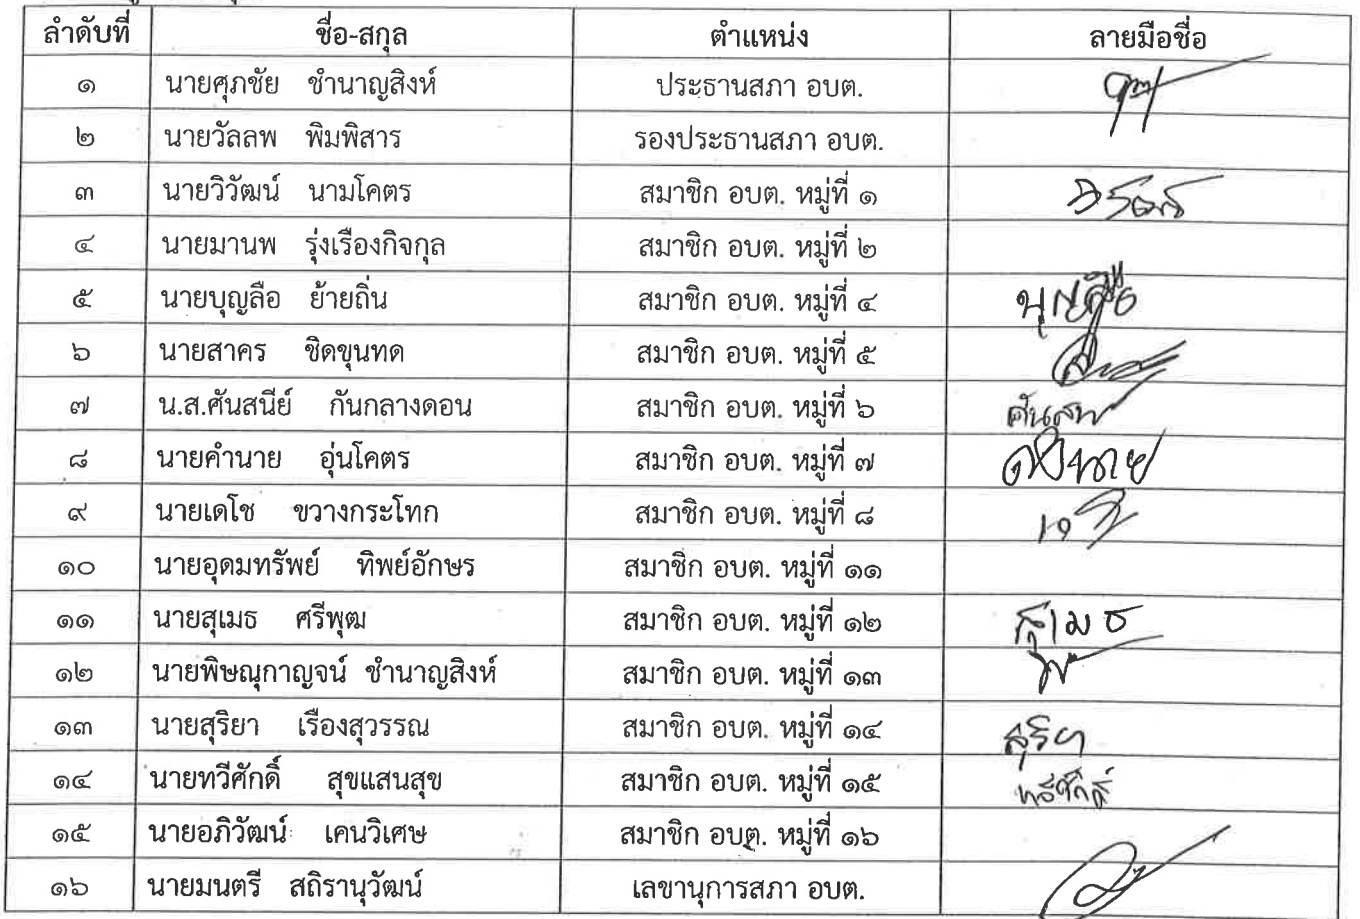 ลำดับที่ ชื่อ-สกุล ตำแหน่ง ลายมือชื่อ
๑ นายศุภชัย ชำนาญสิงห์ ประธานสภา อบต.
๒ นายวัลลพ พิมพิสาร รองประธานสภา อบต.
๓ นายวิวัฒน์ นามโคตร สมาชิก อบต. หมู่ที่ ๑
๔ นายมานพ รุ่งเรืองกิจกุล สมาชิก อบต. หมู่ที่ ๒
๕ นายบุญลือ ย้ายถิ่น สมาชิก อบต. หมู่ที่ ๔ บุญลือ
๖ นายสาคร ชิดขุนทด สมาชิก อบต. หมู่ที่ ๕
๗ น.ส.ศันสนีย์ กันกลางดอน สมาชิก อบต. หมู่ที่ ๖
๘ นายคำนาย อุ่นโคตร สมาชิก อบต. หมู่ที่ ๗ คำนาย
๙ นายเดโช ขวางกระโทก สมาชิก อบต. หมู่ที่ ๘
๑๐ นายอุดมทรัพย์ ทิพย์อักษร สมาชิก อบต. หมู่ที่ ๑๑
๑๑ นายสุเมธ ศรีพุฒ สมาชิก อบต. หมู่ที่ ๑๒ สุเมธ
๑๒ นายพิษณุกาญจน์ ชำนาญสิงห์ สมาชิก อบต. หมู่ที่ ๑๓
๑๓ นายสุริยา เรืองสุวรรณ สมาชิก อบต. หมู่ที่ ๑๔ สุริยา
๑๔ นายทวีศักดิ์ สุขแสนสุข สมาชิก อบต. หมู่ที่ ๑๕ ทวีศักดิ์
๑๕ นายอภิวัฒน์ เคนวิเศษ สมาชิก อบต. หมู่ที่ ๑๖
๑๖ นายมนตรี สถิรานุวัฒน์ เลขานุการสภา อบต.